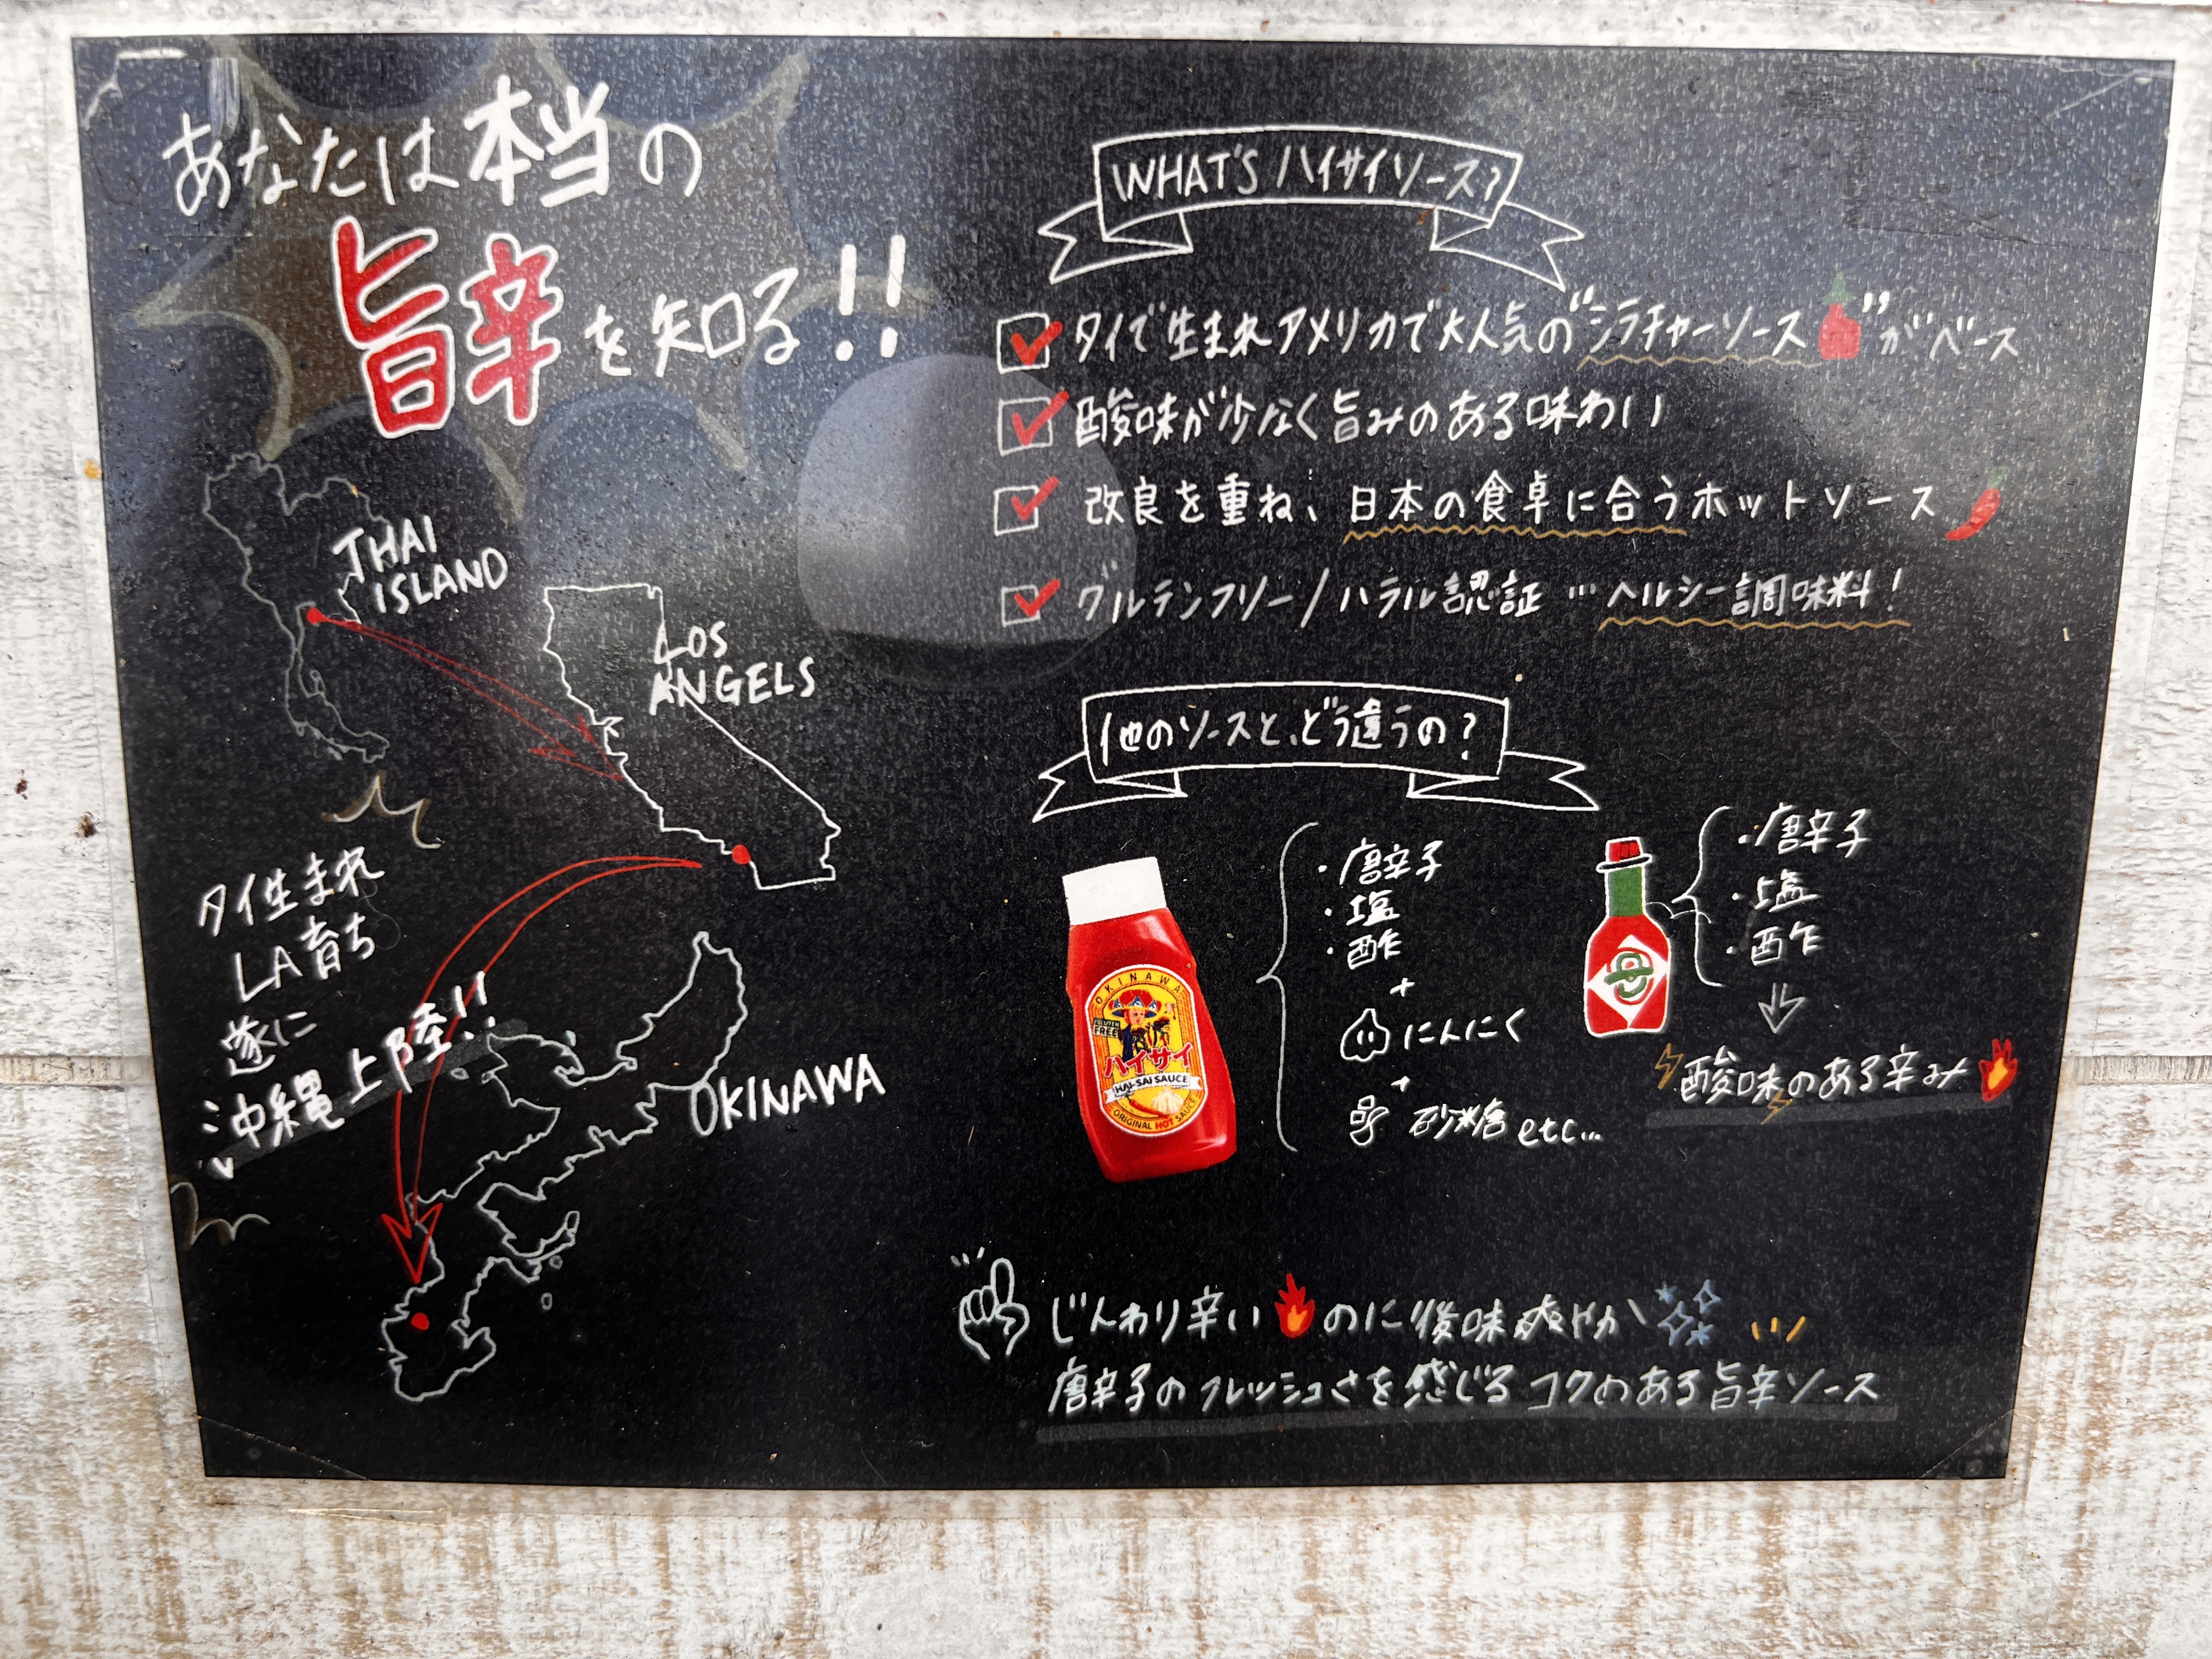 あなたは本当の
旨辛を知る!!
THAI
ISLAND
LOS
ANGELS
タイ生まれ
LA育ち
遂に
沖縄上陸!!
OKINAWA
WHAT'S ハイサイソース?
タイで生まれアメリカで大人気の"シラチャーソース"がベース
酸味が少なく旨みのある味わい
改良を重ね、日本の食卓に合うホットソース
グルテンフリー/ハラル認証…ヘルシー調味料!
他のソースと、どう違うの?
OKINAWA
GLUTEN
FREE
ハイサイ
HAI-SAI SAUCE
ORIGINAL HOT SAUCE
・唐辛子
・塩
・酢
+
にんにく
+
砂糖 etc...
・唐辛子
・塩
・酢
酸味のある辛み
じんわり辛いのに後味爽やか
唐辛子のフレッシュさを感じるコクのある旨辛ソース